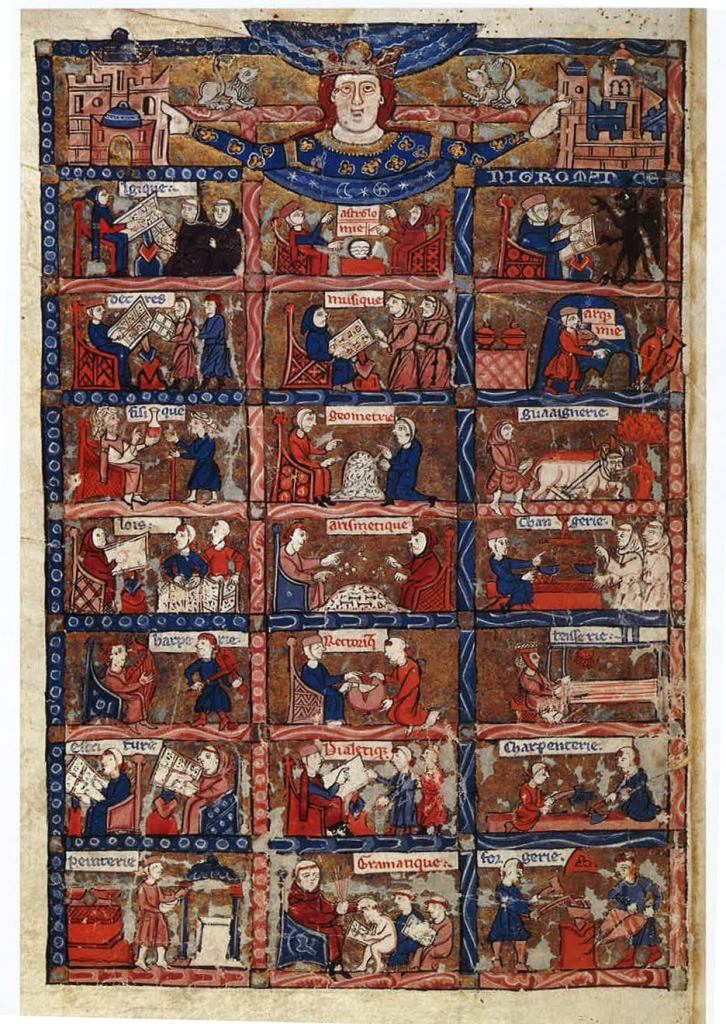 NIGROMANCE
logique
astrolo
mie
decres
musique
arq
mie
fisique
geometrie
guaaignerie
lois
arismetique
Changerie
harperie
Rectoriq
tisserie
Escriture
Dialetiq
Charpenterie
peinterie
Gramatique
forgerie